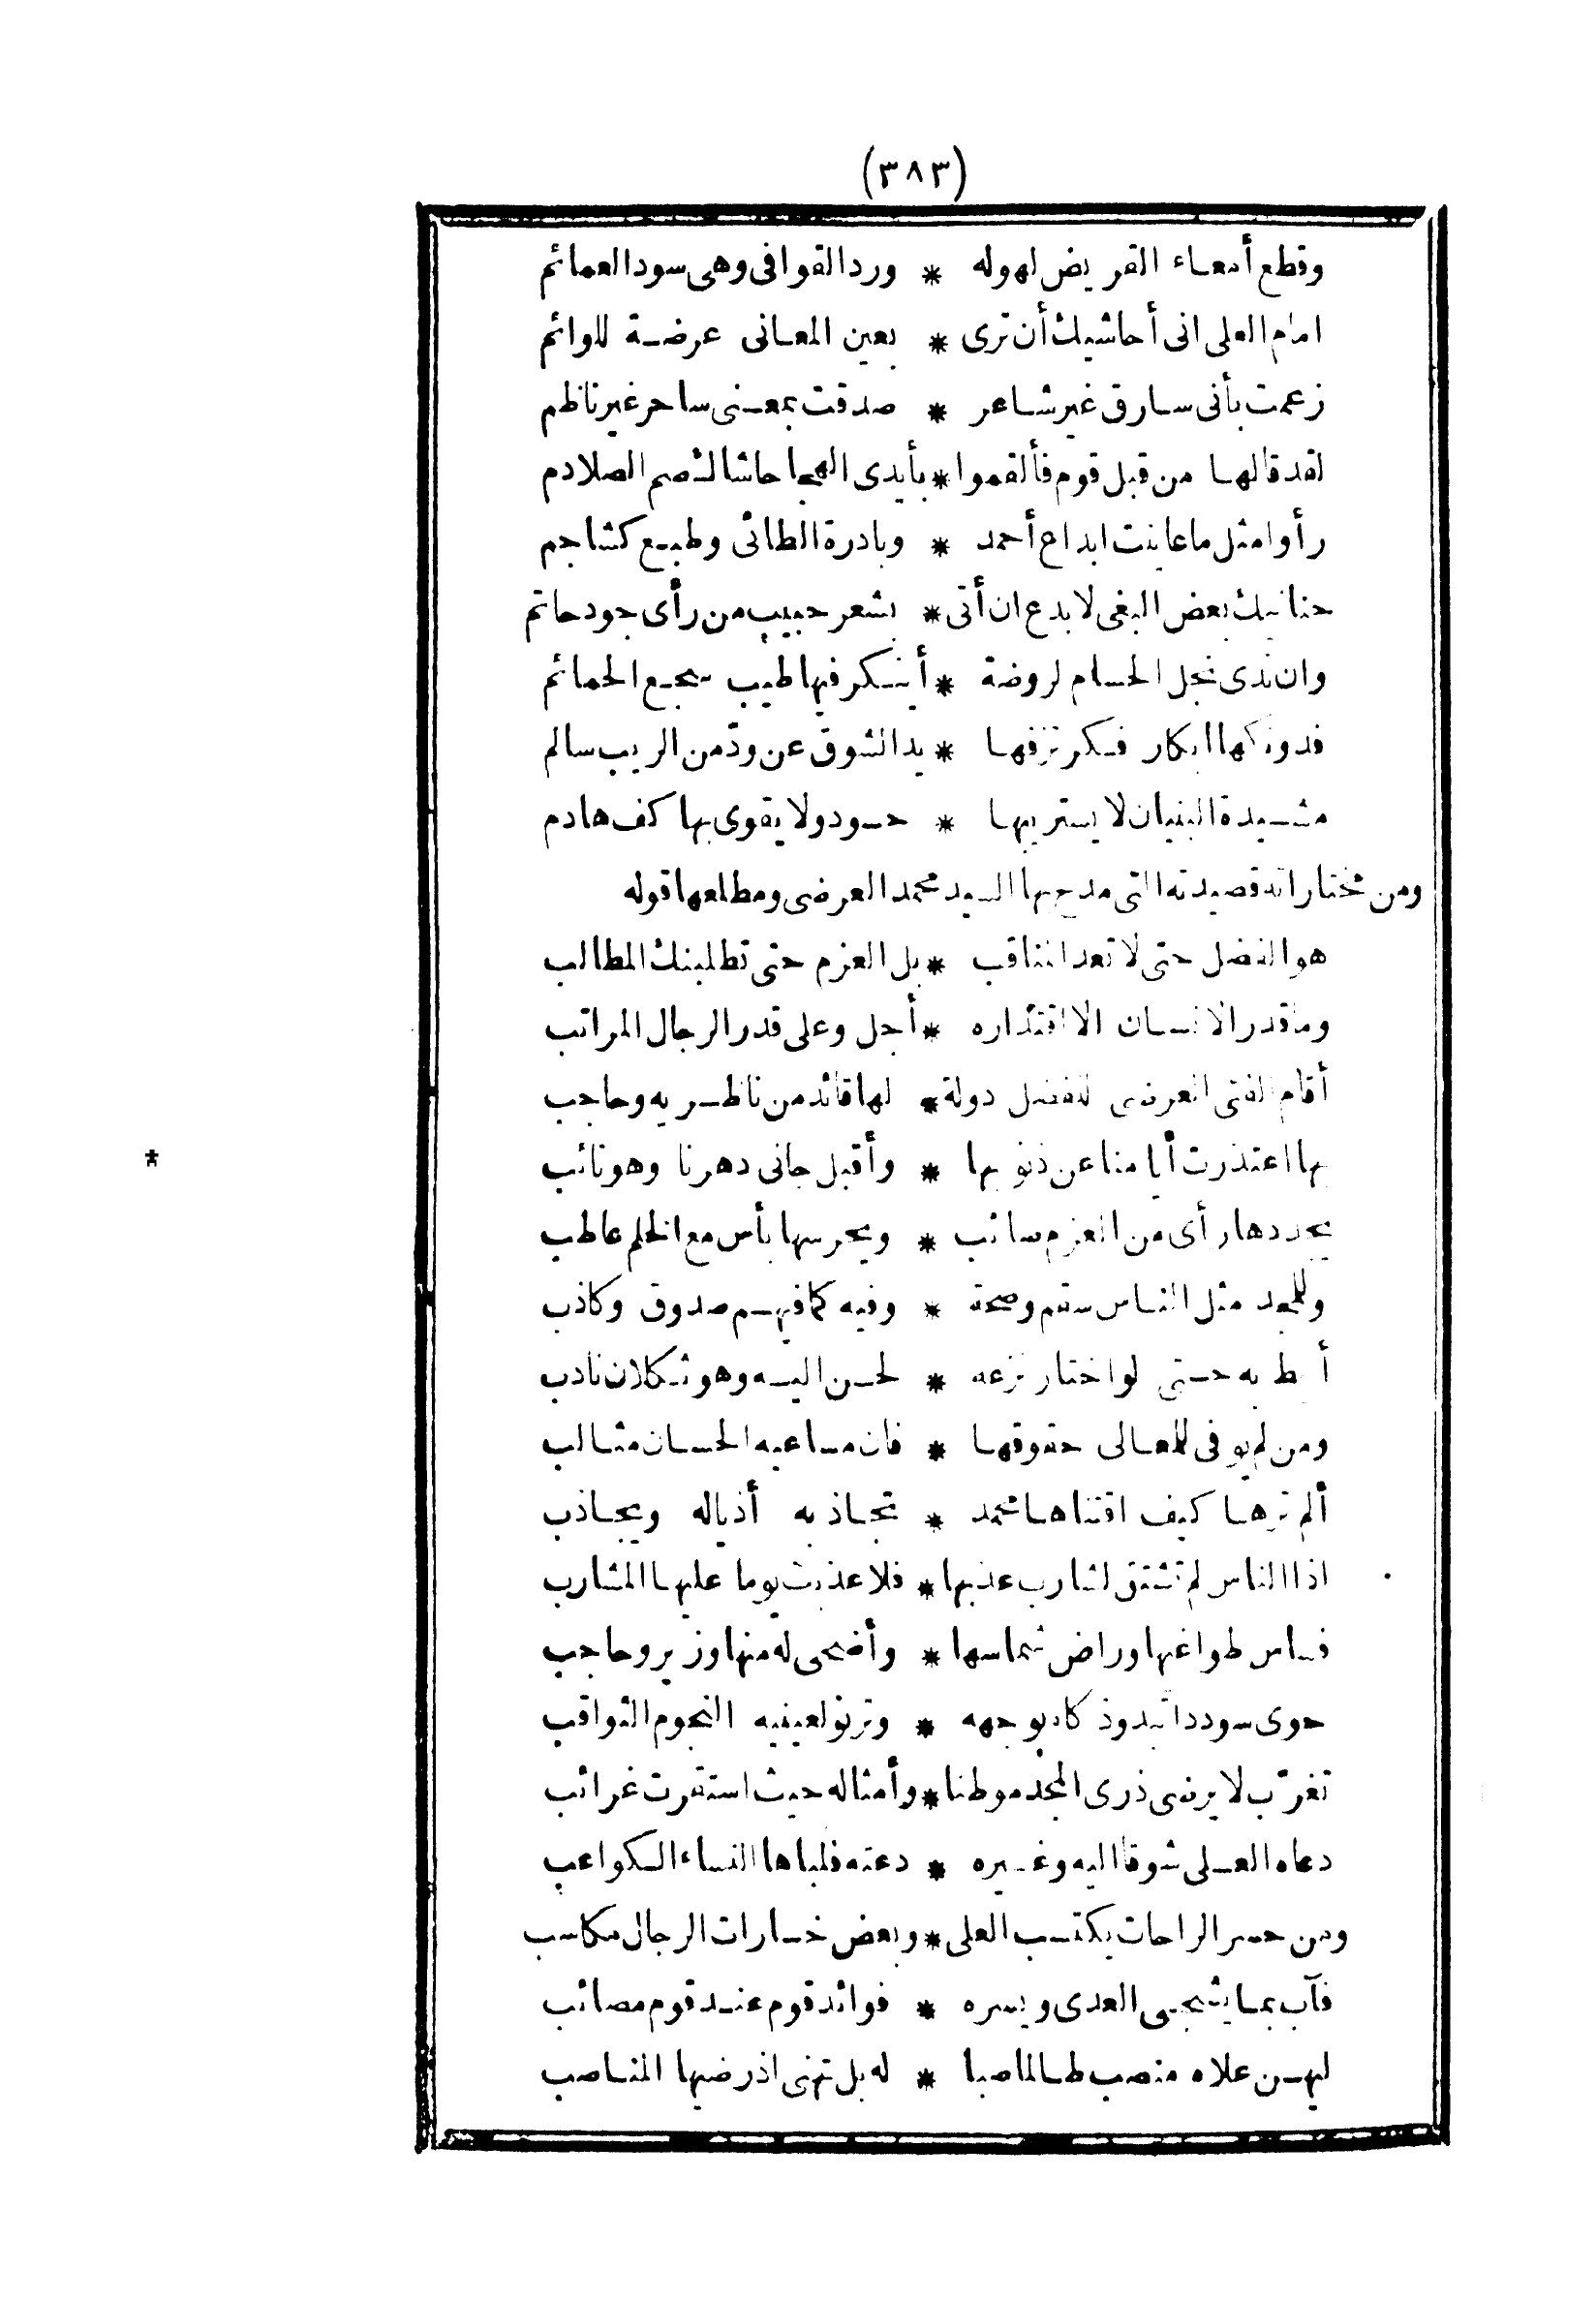 (٣٨٣)
وقطع أمعاء القريض لهوله * ورد القوافى وهى سود العمائم
امام العلى انى أحاشيك أن ترى * بعين المعانى عرضة للوائم
زعمت بأنى سارق غير شاعر * صدقت بمعنى ساحر غير ناظم
لقد قالها من قبل قوم فألقموا * بأيدى الهجا حاشاك صم الصلادم
رأوا مثل ما عاينت ابداع أحمد * وبادرة الطائى وطبع كشاجم
حنانيك بعض البغى لا بدع ان أتى * بشعر حبيب من رأى جود حاتم
وان ندى نجل الحسام لروضة * أينكر فيها طيب سجع الحمائم
فدونكها ابكار فكر تزفها * يد الشوق عن ودّ من الريب سالم
مشيدة البنيان لا يستريبها * حسود ولا يقوى بها كف هادم
ومن مختاراته قصيدته التى مدح بها السيد محمد العرضى ومطلعها قوله
هو الفضل حتى لا تعد المناقب * بل العزم حتى تطلبنك المطالب
وما قدر الانسان الا اقتداره * أجل وعلى قدر الرجال المراتب
أقام الفتى العرضى للفضل دولة * لها قائد من ناظريه وحاجب
بها اعتذرت أيامنا عن ذنوبها * وأقبل جانى دهرنا وهو تائب
يجددها رأى من العزم صائب * ويحرسها بأس مع الحلم عاطب
وللمجد مثل الناس سقم وصحة * وفيه كما فيهم صدوق وكاذب
أـط به حتى لو اختار نزعه * لحن اليه وهو ثكلان نادب
ومن لم يوفى للمعالى حقوقها * فان مساعيه الحسان مثالب
ألم ترها كيف اقتناها محمد * تجاذبه أذياله ويجاذب
اذا الناس لم تشتق لشارب عذبها * فلا عذبت يوما عليها المشارب
فساس طواغيها وراض شماسها * وأضحى له منها وزير وحاجب
حوى سوددا تبدو ذكاء بوجهه * وترنو لعينيه النجوم الثواقب
تغرّب لا يرضى ذرى المجد موطنا * وأمثاله حيث استقرت غرائب
دعاه العلى شوقا اليه وغيره * دعته فلباها النساء الكواعب
ومن خسر الراحات يكتسب العلى * وبعض خسارات الرجال مكاسب
فآب بما يشجى العدى ويسره * فوائد قوم عند قوم مصائب
ليهن علاه منصب طالما صبا * له بل تهنى اذ رضيها المناصب
*